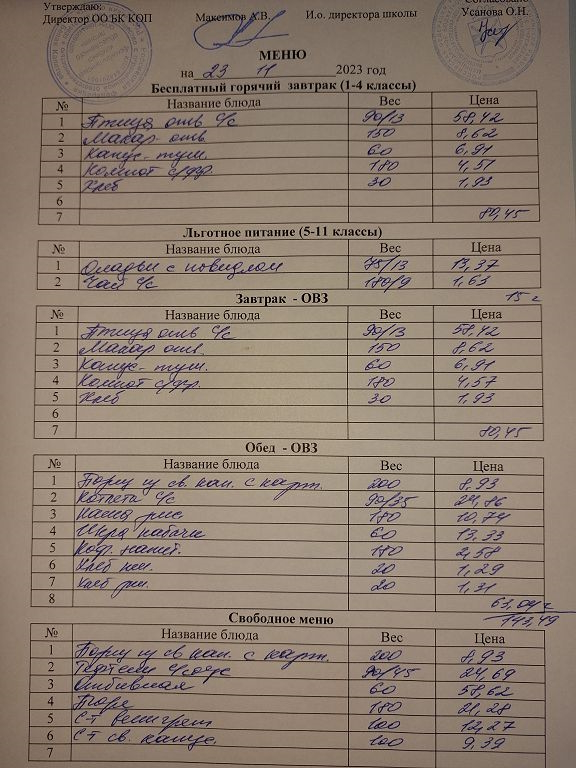 Утверждаю: Согласовано
Директор ОО БК КОП Максимов А.В. И.о. директора школы Усанова О.Н.
МЕНЮ
на 23 11 2023 год
Бесплатный горячий завтрак (1-4 классы)
№ Название блюда Вес Цена
1 Птица отв с/с 90/13 58,42
2 Макар. отв. 150 8,62
3 Капус. туш. 60 6,91
4 Компот с/фр. 180 4,57
5 Хлеб 30 1,93
6
7 80,45
Льготное питание (5-11 классы)
№ Название блюда Вес Цена
1 Оладьи с повидлом 75/13 13,37
2 Чай с/с 180/9 1,63
15 =
Завтрак - ОВЗ
№ Название блюда Вес Цена
1 Птица отв с/с 90/13 58,42
2 Макар отв. 150 8,62
3 Капус. туш. 60 6,91
4 Компот с/фр. 180 4,57
5 Хлеб 30 1,93
6
7 80,45
Обед - ОВЗ
№ Название блюда Вес Цена
1 Борщ из св. кап. с карт. 200 8,93
2 Котлета с/с 90/35 24,86
3 Каша рис. 180 10,74
4 Икра кабачк 60 13,33
5 Коф. напит. 180 2,58
6 Хлеб пш. 20 1,29
7 Хлеб рж. 20 1,31
8 63,04
143,49
Свободное меню
№ Название блюда Вес Цена
1 Борщ из св кап. с карт. 200 8,93
2 Тефтели с/соус 90/45 24,69
3 Отбивная 60 58,62
4 Пюре 180 21,28
5 С-т винигрет 100 12,27
6 С-т св. капус. 100 9,39
7